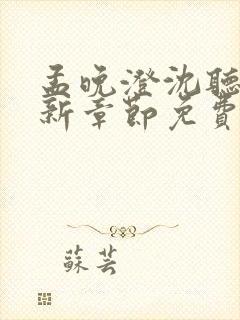 孟晚澄沈聽
新章節免費
蘇芸